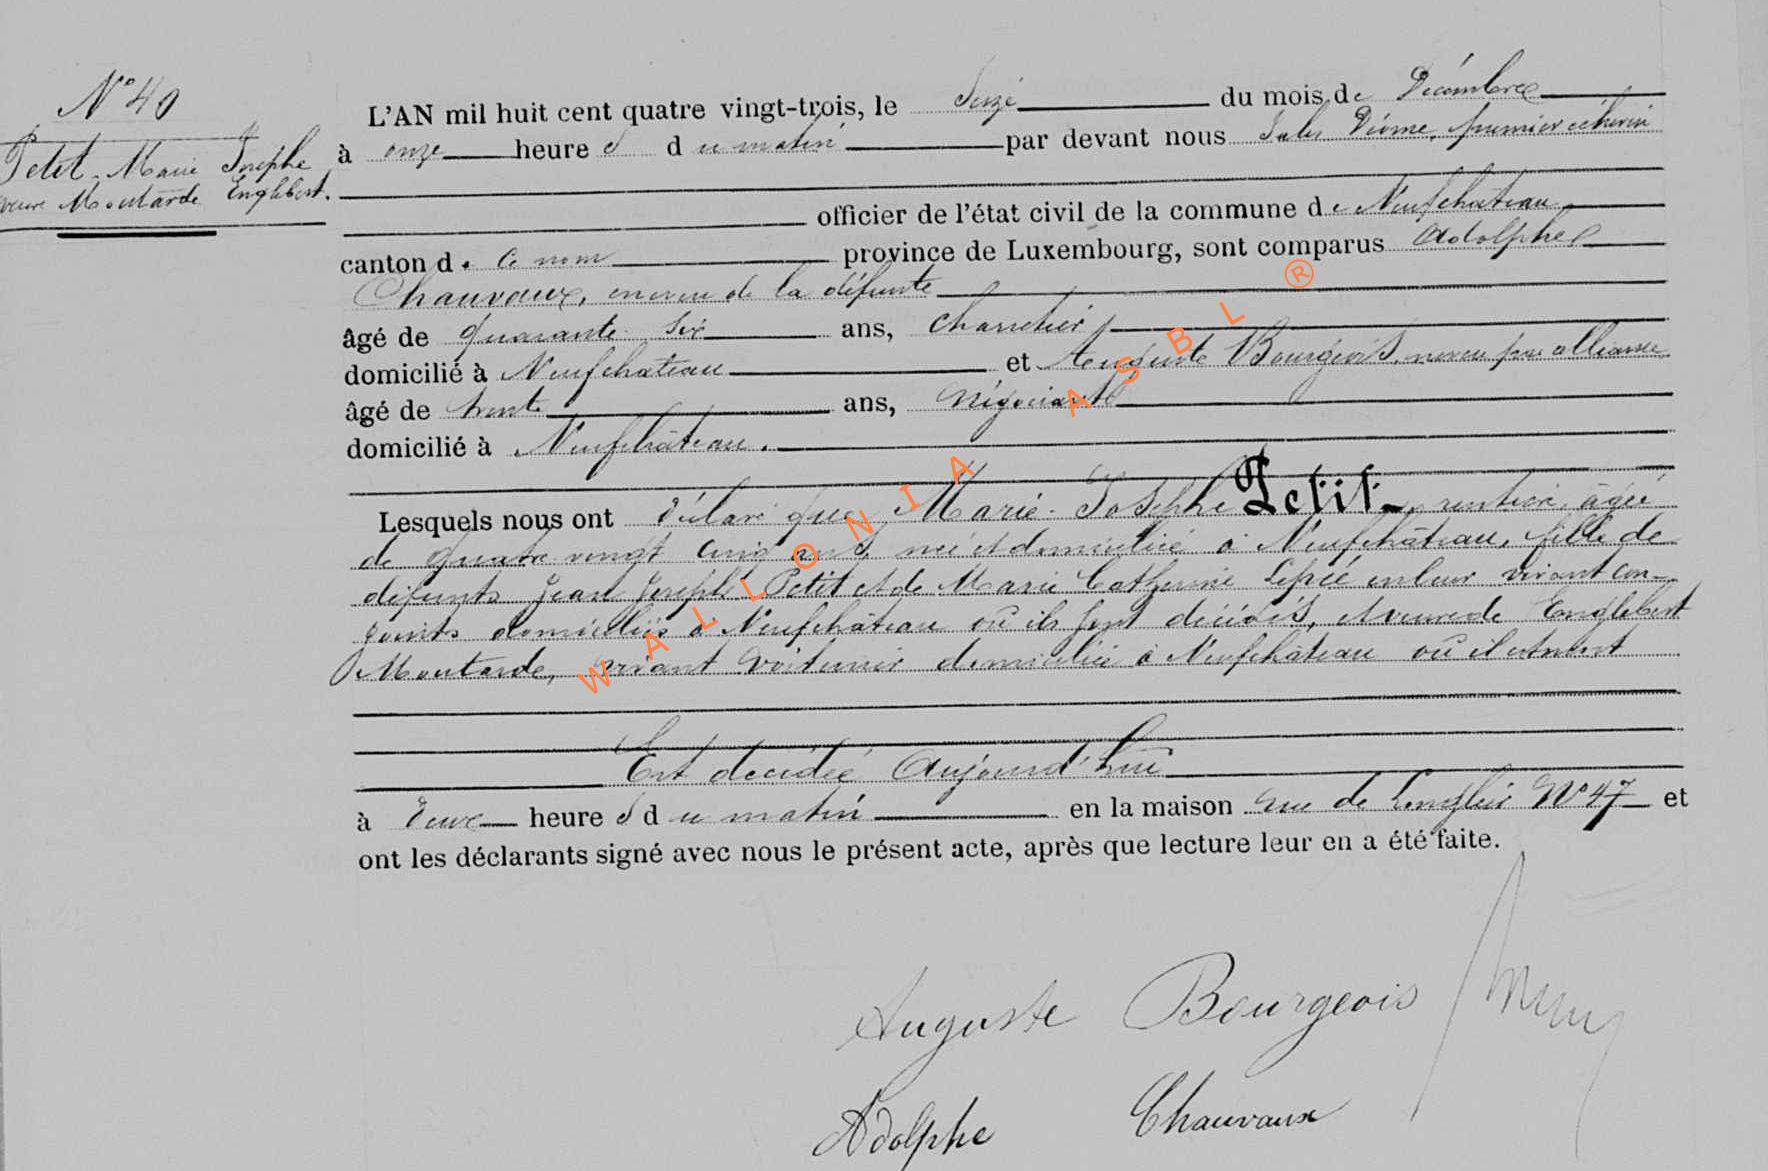 N° 40
Petit Marie Josephe
veuve Moutarde Englebert.
L'AN mil huit cent quatre vingt-trois, le seize du mois de Décembre
à onze heures du matin par devant nous Jules premier échevin
officier de l'état civil de la commune de Neufchâteau
canton d. ce nom province de Luxembourg, sont comparus Adolphe
Chauvaux, neveu de la défunte
âgé de quarante six ans, charretier
domicilié à Neufchateau et Auguste Bourgeois, neveu par alliance
âgé de trente ans, négociant
domicilié à Neufchâteau.
Lesquels nous ont déclaré que Marie-Josephe Petit rentière, âgée
de quatre vingt cinq ans, née et domiciliée à Neufchâteau, fille de
défunts Jean Joseph Petit et de Marie Catherine en leur vivant con-
joints domiciliés à Neufchâteau où ils sont décédés, et veuve de Englebert
Moutarde, vivant voiturier domicilié à Neufchâteau où il est mort
Est décédée aujourd'hui
à deux heures du matin en la maison rue de N° 47 et
ont les déclarants signé avec nous le présent acte, après que lecture leur en a été faite.
Auguste Bourgeois
Adolphe Chauvaux
WALLONIA ASBL ®